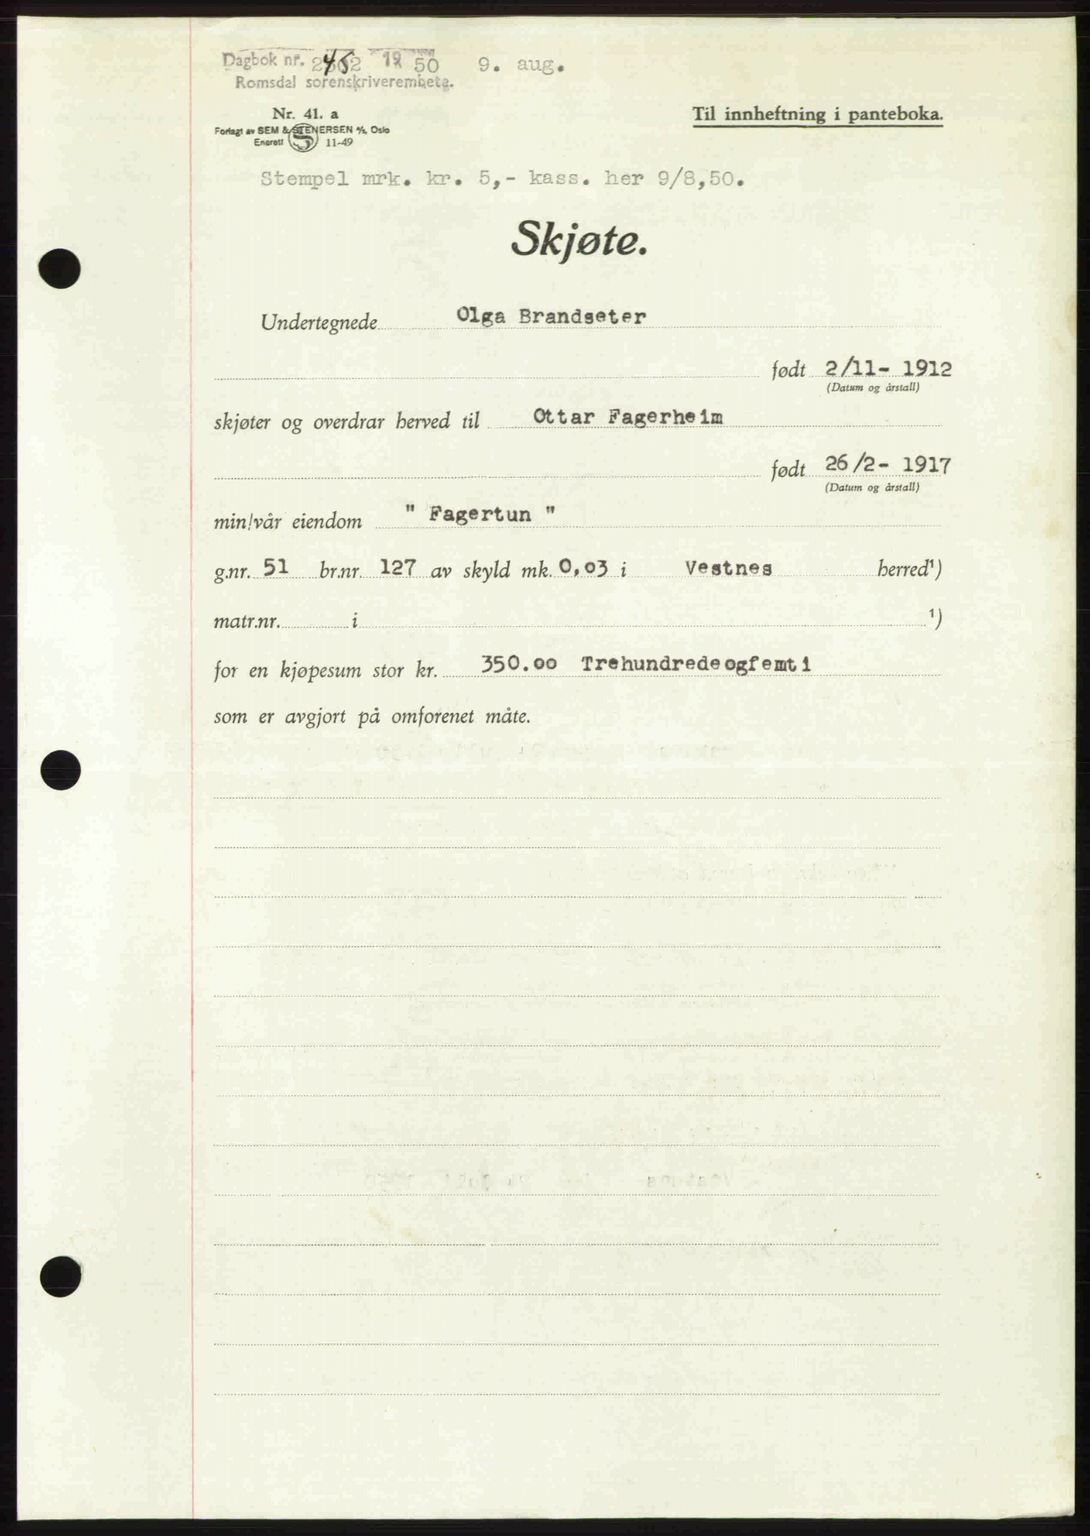 Dagbok nr. 2452 1950 9. aug.
Romsdal sorenskriverembete.
Nr. 41. a
Forlagt av SEM & STENERSEN A/S, Oslo
Enerett 11-49
Til innheftning i panteboka.
Stempel mrk. kr. 5,- kass. her 9/8,50.
Skjøte.
Undertegnede Olga Brandseter
født 2/11- 1912
(Datum og årstall)
skjøter og overdrar herved til Ottar Fagerheim
født 26/2- 1917
(Datum og årstall)
min/vår eiendom " Fagertun "
g.nr. 51 br.nr. 127 av skyld mk. 0,03 i Vestnes herred¹)
matr.nr. i ¹)
for en kjøpesum stor kr. 350.00 Trehundredeogfemti
som er avgjort på omforenet måte.